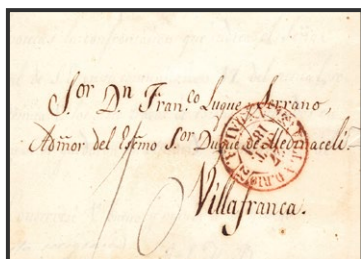 S.or D.n Fran.co Luque Serrano,
Admor del Esmo S.or Duque de Medinaceli.
Villafranca.